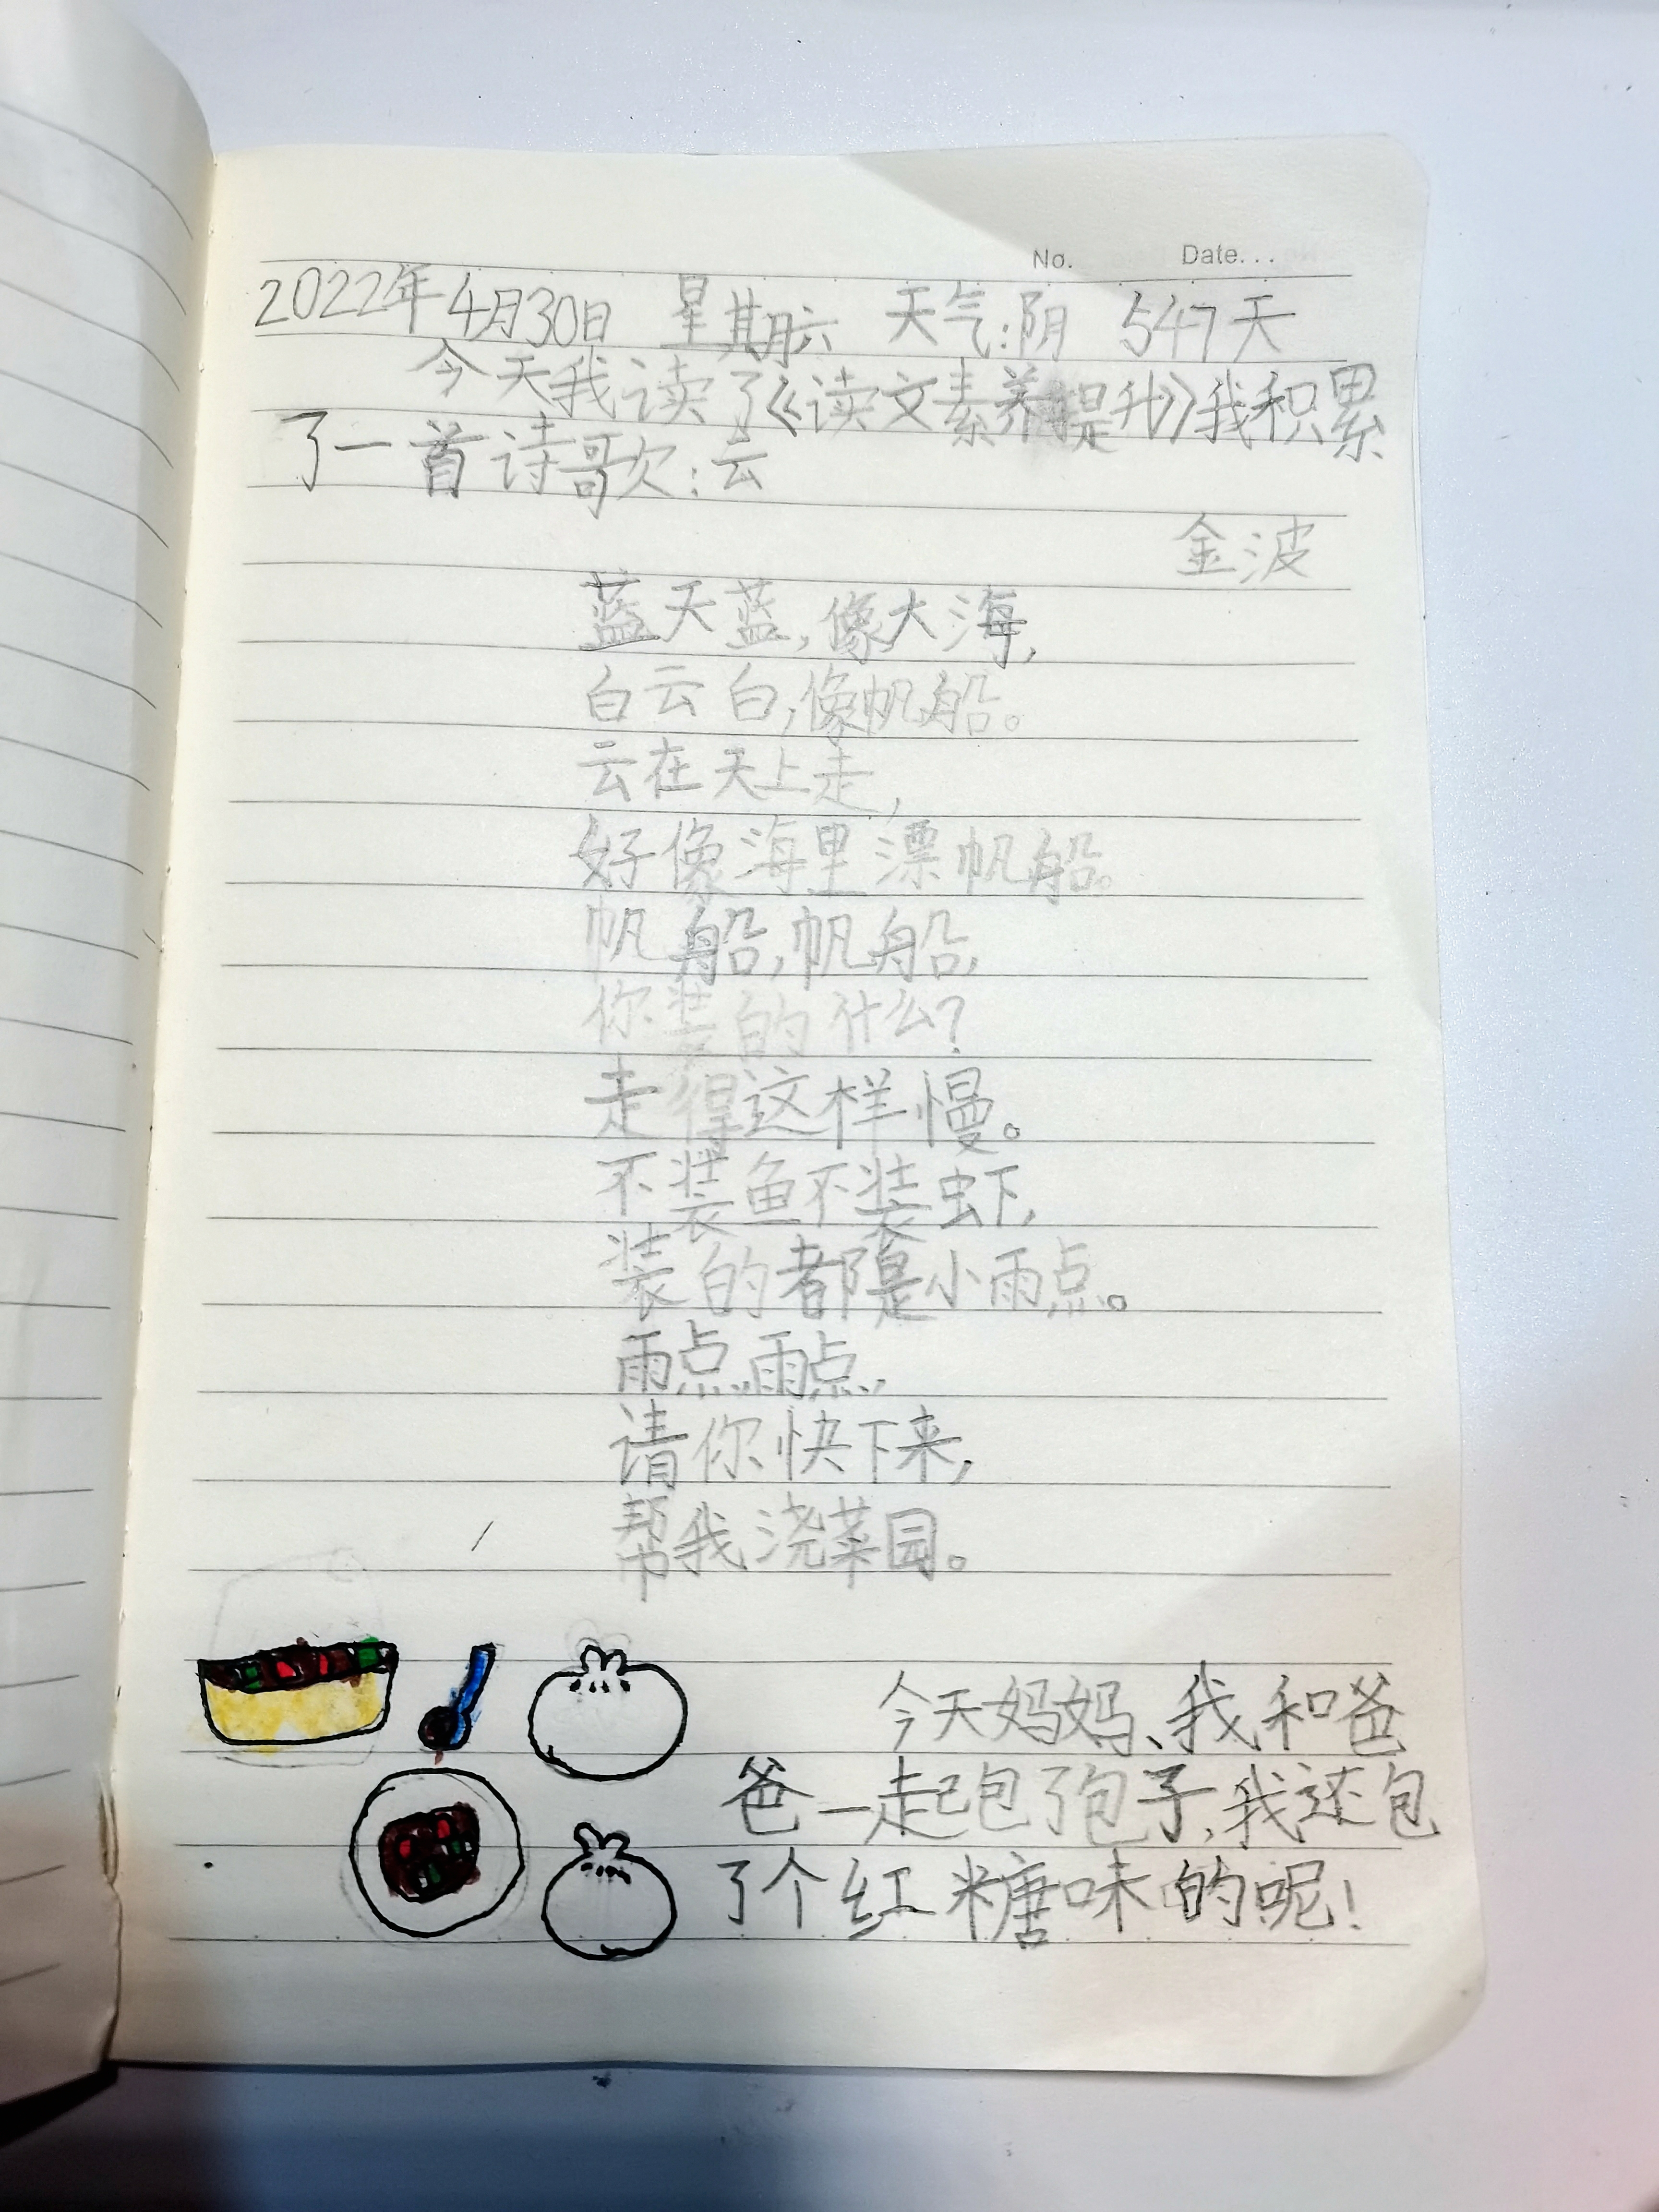 No. Date...
2022年4月30日 星期六 天气:阴 547天
今天我读了《读文素养提升》我积累
了一首诗歌:云
金波
蓝天蓝,像大海,
白云白,像帆船。
云在天上走,
好像海里漂帆船。
帆船,帆船,
你装的什么?
走得这样慢。
不装鱼不装虾,
装的都是小雨点。
雨点,雨点,
请你快下来,
帮我浇菜园。
今天妈妈、我和爸
爸一起包了包子,我还包
了个红糖味的呢!